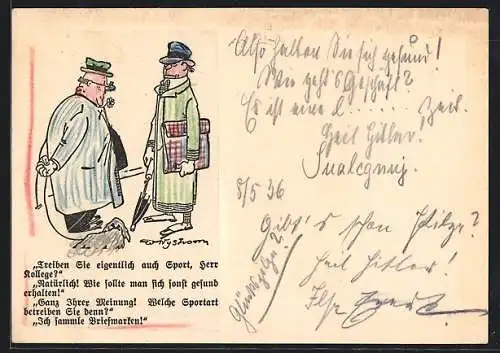 „Treiben Sie eigentlich auch Sport, Herr
Kollege?"
„Natürlich! Wie sollte man sich sonst gesund
erhalten!"
„Ganz Ihrer Meinung! Welche Sportart
betreiben Sie denn?"
„Ich sammle Briefmarken!"
Also halten Sie sich gesund!
Wie geht's Geschäft?
Es ist eine l...... Zeit.
Heil Hitler!
8/5 36
Gibt's schon Pilze?
Heil Hitler!
Ilse